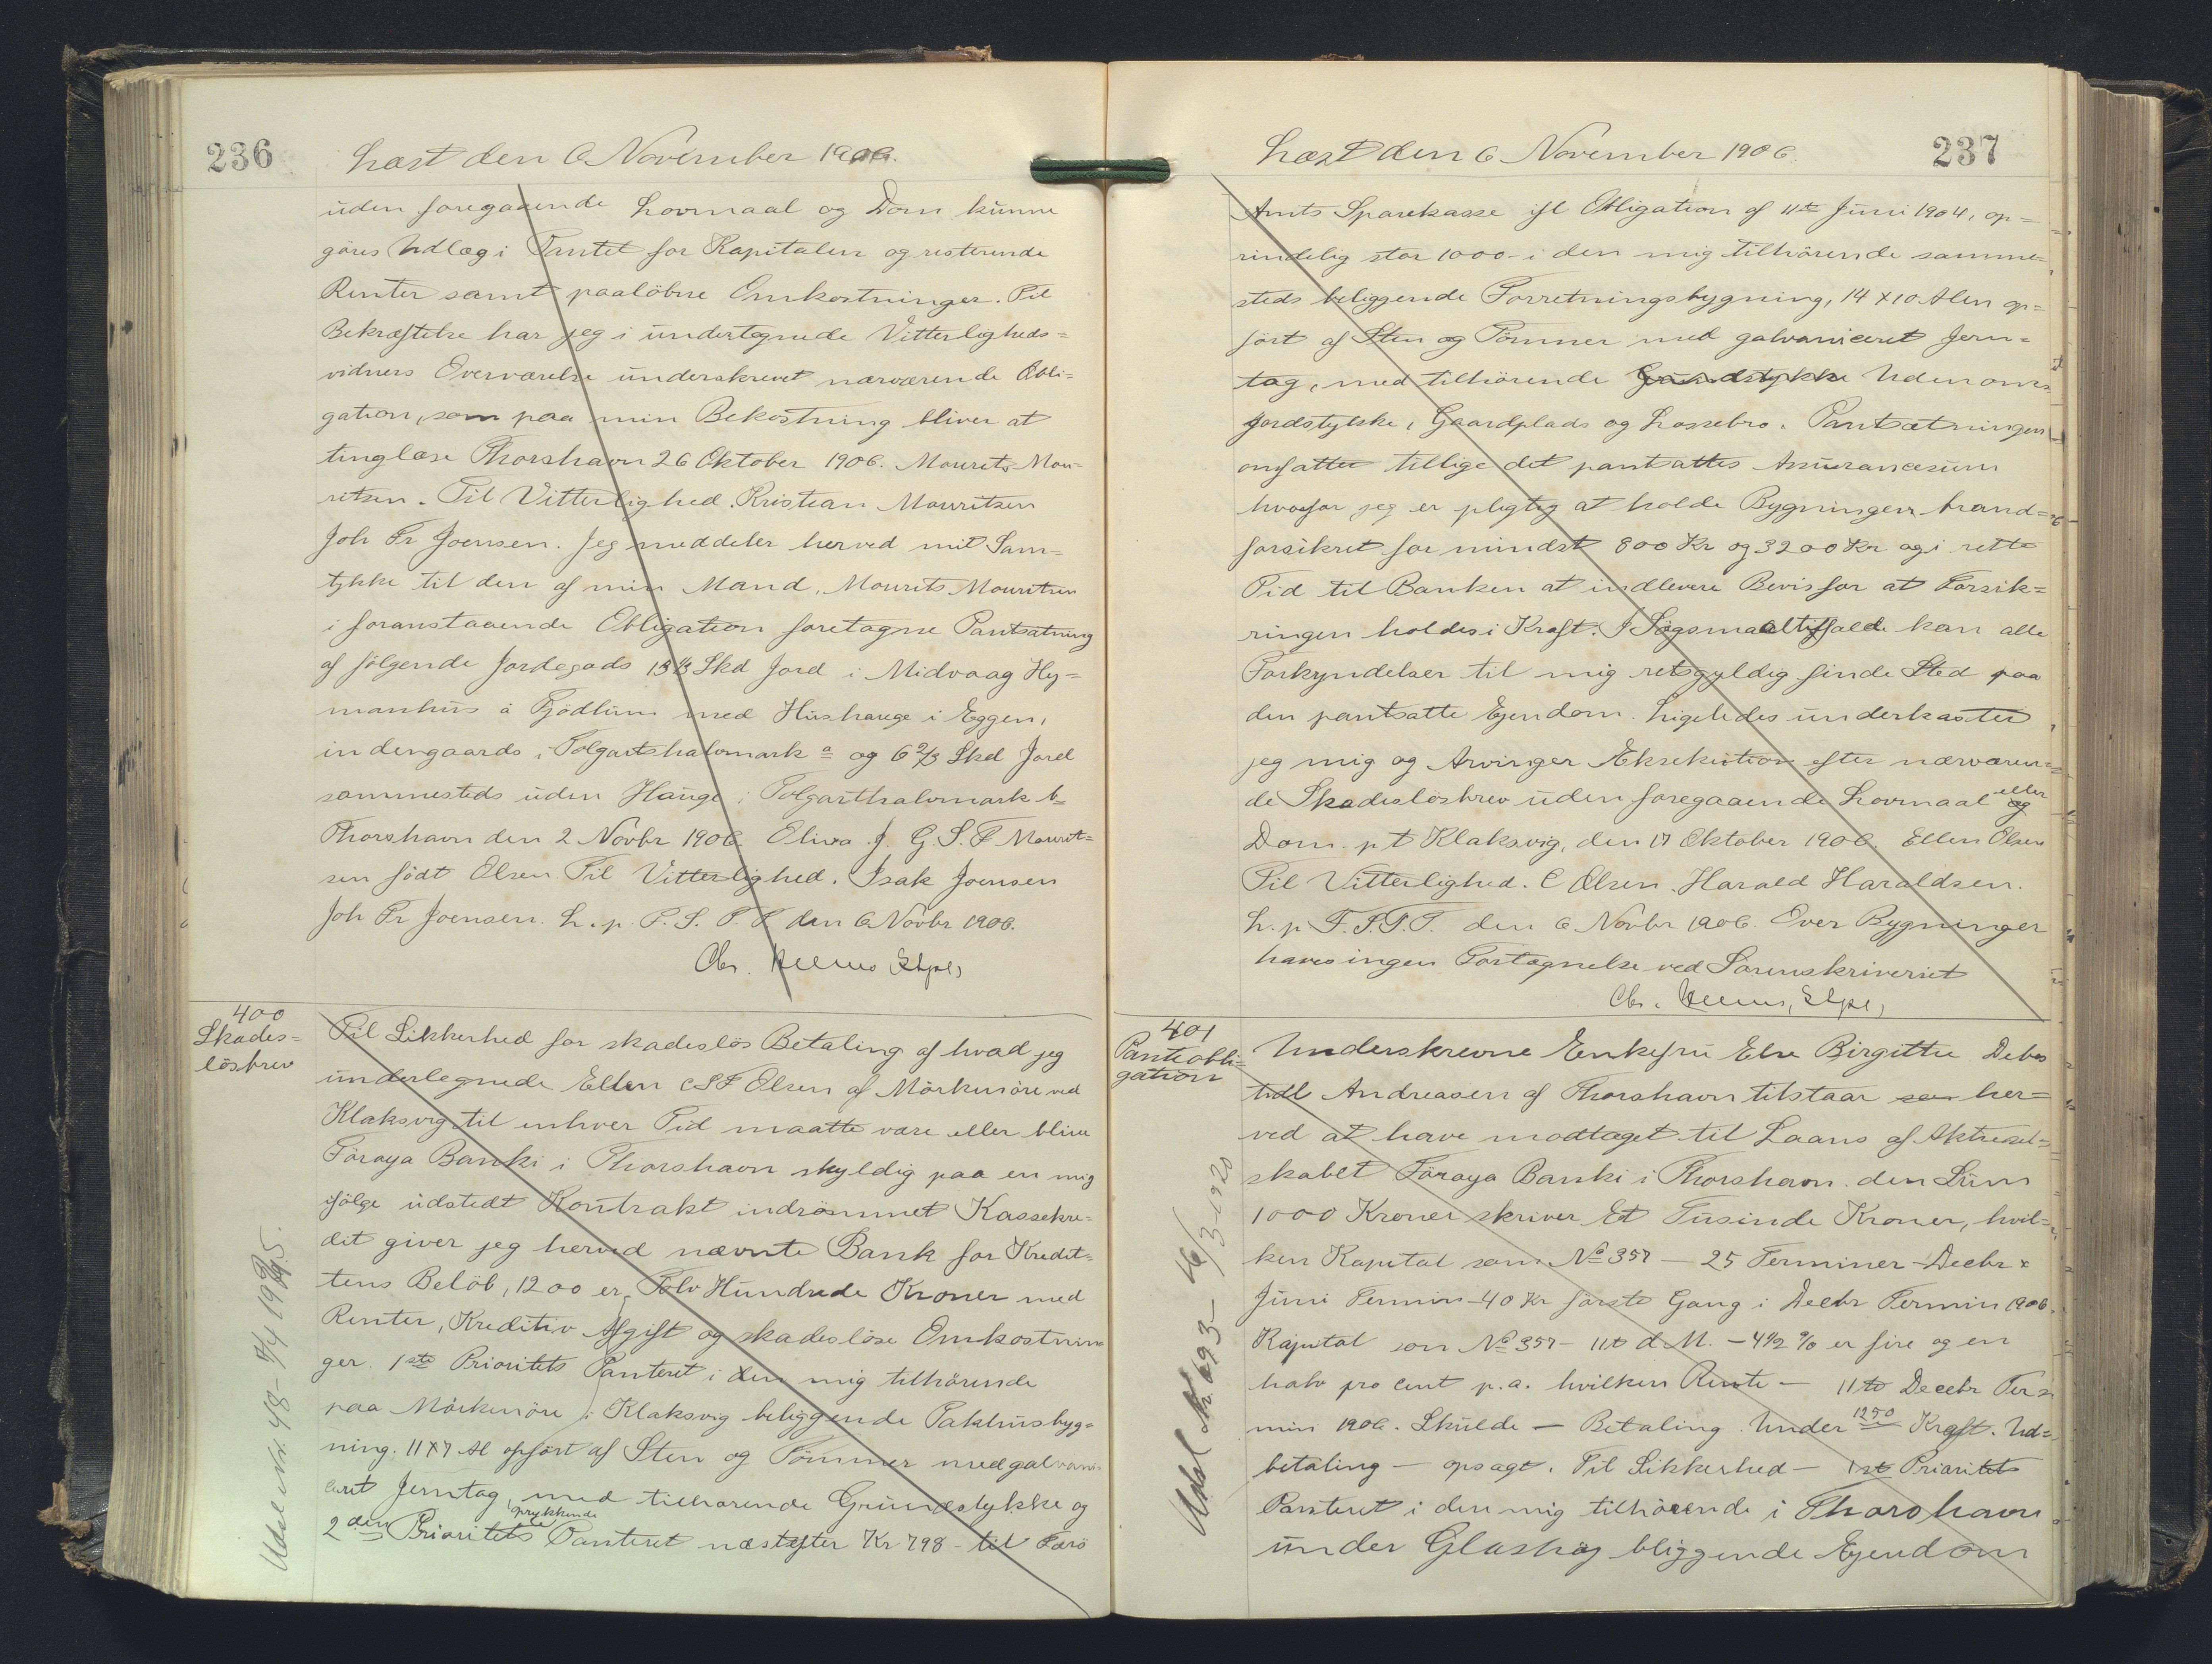 236
Læst den 6 November 1906.
uden foregaaende Lovmaal og Dom kunne
göres Udlæg i Pantet for Kapitalen og resterende
Renter samt paalöbne Omkostninger. Til
Bekræftelse har jeg i undertegnede Vitterligheds=
vidners Overværelse underskrevet nærværende Obli=
gation, som paa min Bekostning bliver at
tinglæse Thorshavn 26 Oktober 1906. Mourits Mou=
ritsen. Til Vitterlighed. Kristian Mouritsen
Joh Pr Joensen. Jeg meddeler herved mit Sam=
tykke til den af min Mand, Mourits Mouritsen
i foranstaaende Obligation foretagne Pantsætning
af fölgende Jordegods 13 1/3 Skd Jord i Midvaag Hy=
manhus à Fjödlum med Hushauge i Eggen,
indengaards i Tolgartshalvmark a og 6 2/3 Skd Jord
sammesteds uden Hauge i Tolgartshalvmark b
Thorshavn den 2 Novbr 1906. Eliva J. G. S. F Mourit=
sen födt Olsen Til Vitterlighed. Isak Joensen
Joh Pr Joensen. L. p. F. S. T. T den 6 Novbr 1906.
Chr.
400
Skades=
lösbrev
Til Sikkerhed for skadeslös Betaling af hvad jeg
undertegnede Ellen C S F Olsen af Mörkenöre ved
Klaksvig til enhver Tid maatte være eller blive
Föroya Banki i Thorshavn skyldig paa en mig
ifölge udstedt Kontrakt indrömmet Kassekre=
dit giver jeg herved nævnte Bank for Kredit=
tens Belöb, 1200 er Tolv Hundrede Kroner med
Renter, Kreditiv Afgift og skadeslöse Omkostnin
ger. 1ste Prioritets Panteret i den mig tilhörende
paa Mörkenöre i Klaksvig beliggende Pakhusbyg=
ning. 11x7 Al opfört af Sten og Tömmer med galvani=
ceret Jerntag, med tilhörende Grundstykke og
oprykkende
2den Prioritets Panteret næstefter Kr 798 - til Færö
237
Læst den 6 November 1906.
Amts Sparekasse ifl Obligation af 11te Juni 1904, op=
rindelig stor 1000 - i den mig tilhörende samme=
steds beliggende Forretningsbygning, 14 x 10 Alen op=
fört af Sten og Tömmer med galvaniceret Jern=
tag, med tilhörende Grundstykke Udenoms
jordstykke, Gaardplads og Lossebro. Pantsætningen
omfatter tillige det pantsattes Assurancesum
hvorfor jeg er pligtig at holde Bygningen brand=
forsikret for mindst 800 Kr og 3200 Kr og i rette
Tid til Banken at indlevere Bevis for at Forsik=
ringen holdes i Kraft. I Sögsmaaltilfælde kan alle
Forkyndelser til mig retsgyldig finde Sted paa
den pantsatte Ejendom. Ligeledes underkaster
jeg mig og Arvinger Eksekution efter nærværen=
de Skadeslösbrev uden foregaaende Lovmaal og eller
Dom. p t Klaksvig, den 17 Oktober 1906. Ellen Olsen
Til Vitterlighed. C Olsen. Harald Haraldsen.
L. p. F. S. T. T. den 6 Novbr 1906. Over Bygninger
haves ingen Fortegnelse ved Sorenskriveriet
Chr.
401
Panteobli=
gation
Underskrevne Enkefru Else Birgitte Debes
födt Andreasen af Thorshavn tilstaar som her=
ved at have modtaget til Laans af Aktiesel=
skabet Föroya Banki i Thorshavn den Sum
1000 Kroner skriver Et Tusinde Kroner, hvil=
ken Kapital som No 357 — 25 Terminer - Decbr &
Juni Termin - 40 Kr förste Gang i Decbr Termin 1906.
Kapital som No 357 - 11te d. M. - 4 1/2 % er fire og en
halv pro cent p.a. hvilken Rente — 11te Decebr Ter=
min 1906. Skulde — Betaling. Under 1250 Kraft. Ud=
betaling — opsagt. Til Sikkerhed — 1ste Prioritets
Panteret i den mig tilhörende i Thorshavn
under Glashög bliggende Ejendom